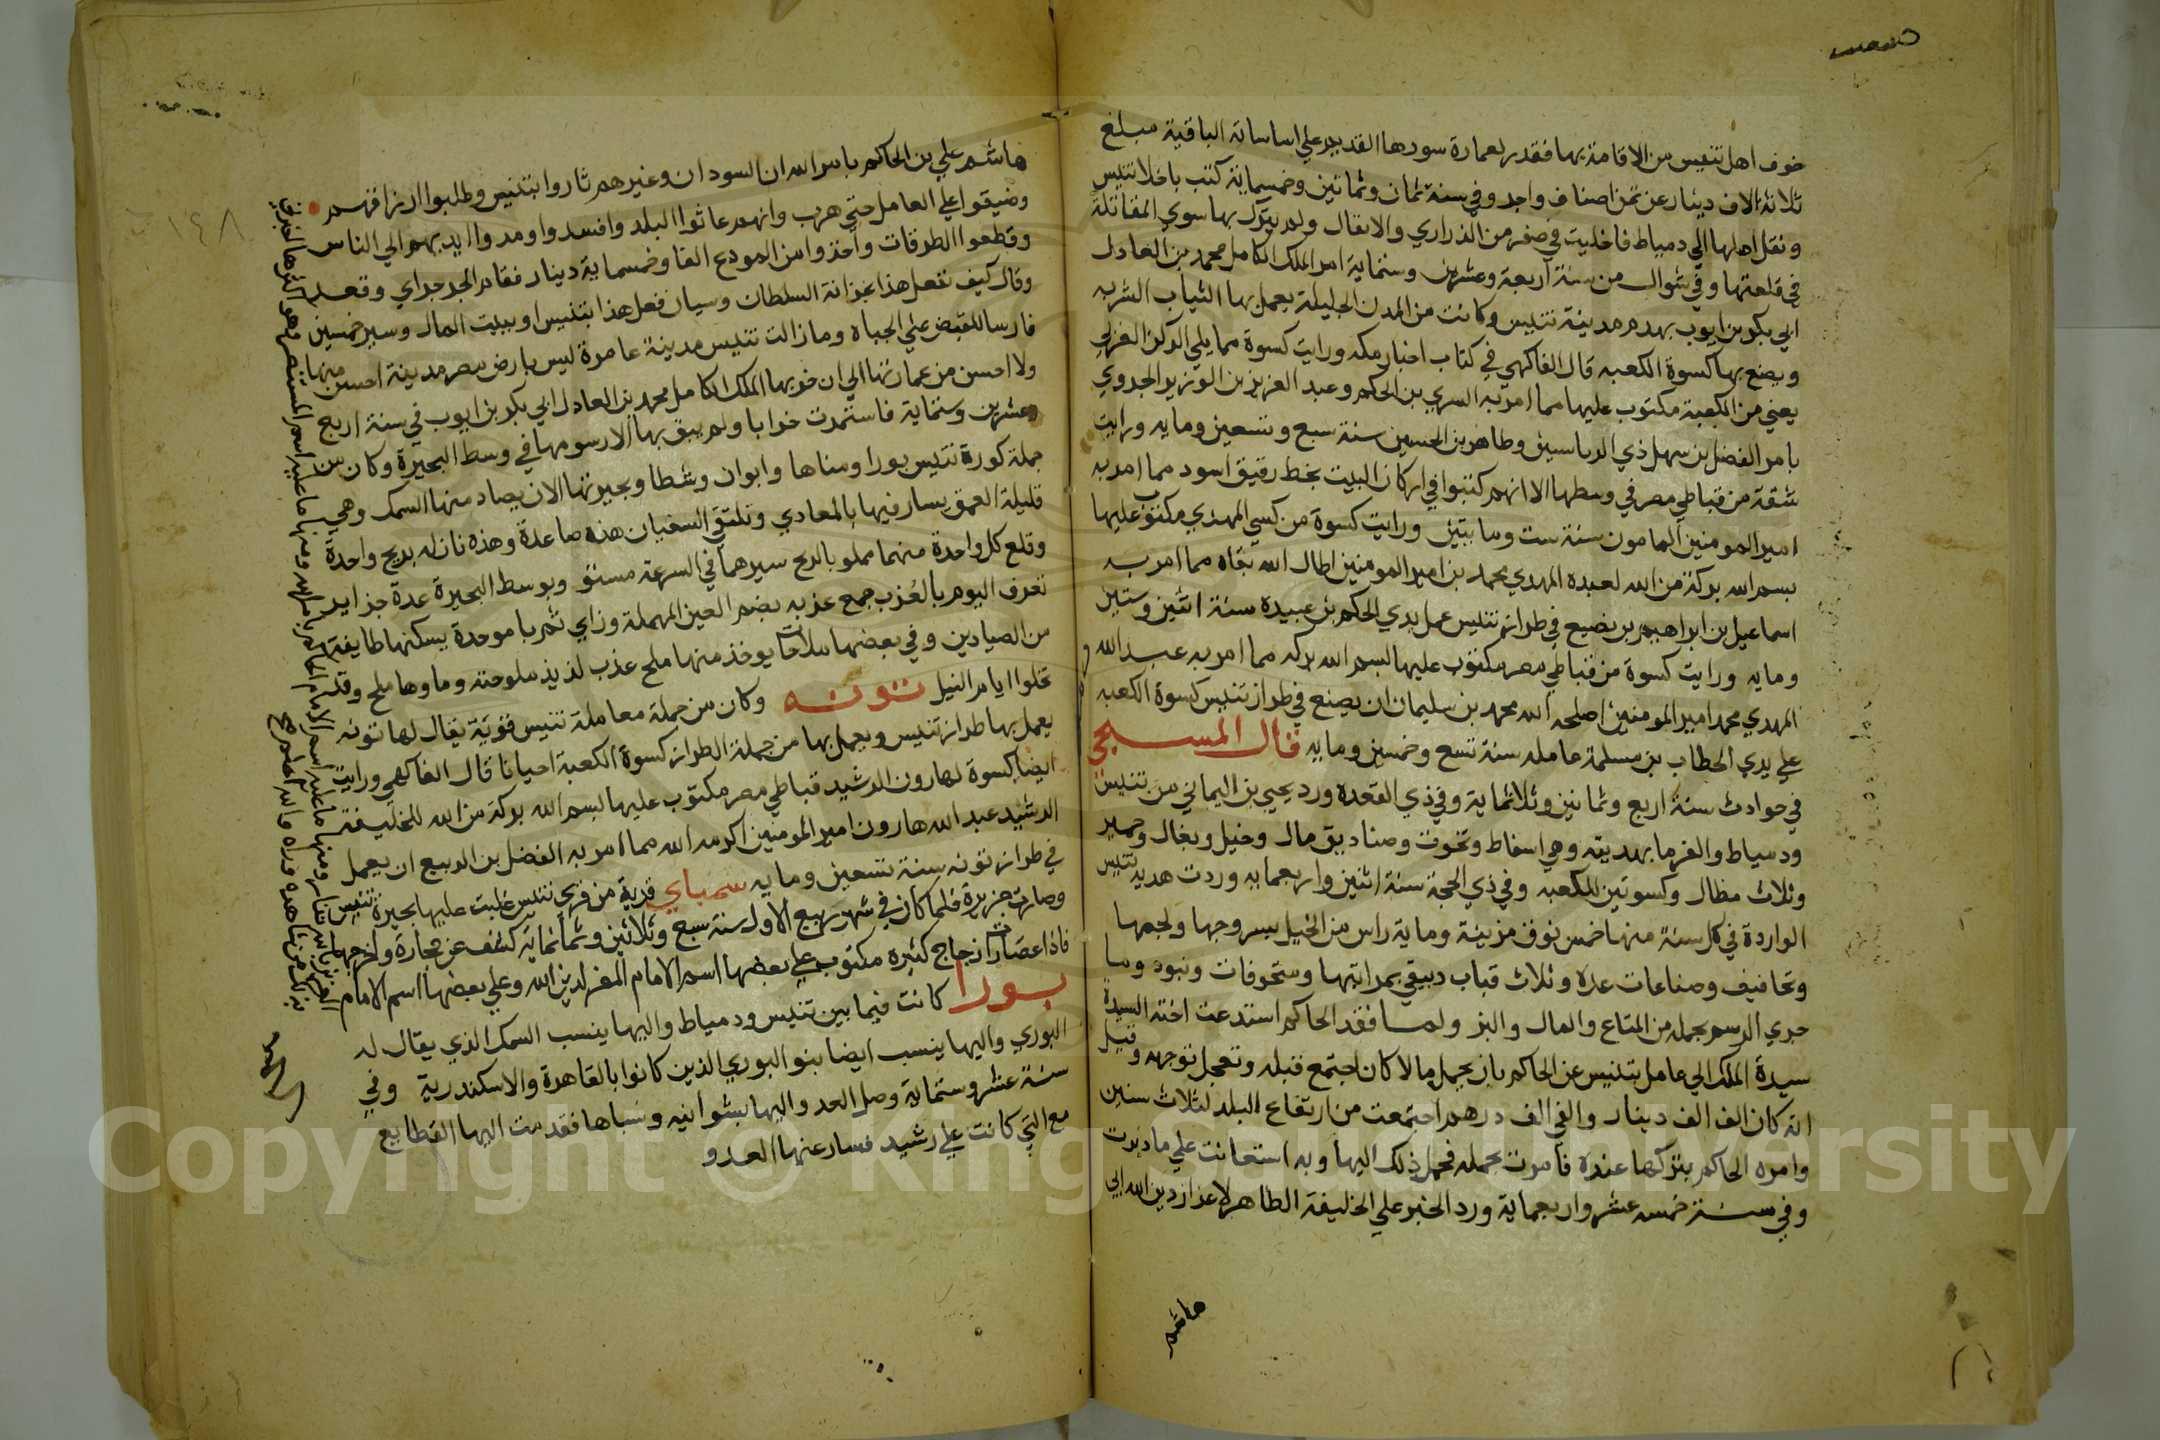 خوف اهل تنيس من الاقامة بها فقدر لعمارة سورها القديم علي اساساته الباقية مبلغ
ثلاثة الاف دينار عن ثمن اصناف واجر وفي سنة ثمان وثمانين وخمسماية كتب باخلا تنيس
ونقل اهلها الي دمياط فاخليت في صفر من الذراري والاثقال ولم يترك بها سوي المقاتلة
في قلعتها وفي شوال من سنة اربعة وعشرين وستماية امر الملك الكامل محمد بن العادل
ابي بكر بن ايوب بهدم مدينة تنيس وكانت من المدن الجليلة يعمل بها الثياب الشربه
ويصنع بها كسوة الكعبه قال الفاكهي في كتاب اخبار مكه ورايت كسوة مما يلي الركن الغربي
يعني من الكعبة مكتوب عليها مما امر به السري بن الحكم وعبد العزيز بن الوزير الجروي
بامر الفضل بن سهل ذي الرياستين وطاهر بن الحسين سنة سبع وتسعين ومايه ورايت
شقة من قباطي مصر في وسطها الا انهم كتبوا في اركان البيت بخط رقيق اسود مما امر به
امير المومنين المامون سنة ست ومايتين ورايت كسوة من كسي المهدي مكتوب عليها
بسم الله بركة من الله لعبده المهدي محمد بن امير المومنين اطال الله بقاه مما امر به
اسماعيل بن ابراهيم بن يضيع في طراز تنيس عمل يدي الحكم بن عبيدة سنة اثنين وستين
ومايه ورايت كسوة من قباطي مصر مكتوب عليها بسم الله بركه مما امر به عبد الله
المهدي محمد امير المومنين اصلحه الله محمد بن سليمان ان يصنع في طراز تنيس كسوة الكعبه
علي يدي الخطاب بن مسلمة عامله سنة تسع وخمسين ومايه قال المسبحي
في حوادث سنة اربع وثمانين وثلاثماية وفي ذي القعدة ورد يحيي بن اليماني من تنيس
ودمياط والفرما بهديته وهي اسفاط وتخوت وصناديق مال وخيل وبغال وحمير
وثلاث مظال وكسوتين للكعبه وفي ذي الحجة سنة اثنين واربعمايه وردت هدية تنيس
الواردة في كل سنة منها خمس نوق مزينة وماية راس من الخيل بسروجها ولجمها
وتجافيف وصناعات عدة وثلاث قباب دبيقي بمراتبها ومتحرقات وبنود وما
جري الرسم بحمله من المتاع والمال والبز ولما فقد الحاكم استدعت اخته السيدة
سيدة الملك الي عامل بتنيس عن الحاكم بان يحمل مالا كان اجتمع قبله وتعجل توجهه وقيل
انه كان الف الف دينار والفي الف درهم اجتمعت من ارتفاع البلد لثلاث سنين
وامره الحاكم بتركها عنده فامرت بحمله فحمل ذلك اليها وبه استعانت علي ما دبرت
وفي سنة خمسه عشر واربعماية ورد الخبر علي الخليفة الظاهر لاعزاز دين الله ابي
هاشم
هاشم علي بن الحاكم بامر الله ان السودان وغيرهم ثاروا بتنيس وطلبوا ارزاقهم
وضيقوا علي العامل حتي هرب وانهم عاثوا البلد وافسدوا ومدوا ايديهم الي الناس
وقطعوا الطرقات واخذوا من المودع الفا وخمسماية دينار فقام الجرجراي وقعد
وقال كيف تفعل هذا بخزانة السلطان وسيان فعل هذا بتنيس او ببيت المال وسير خمسين
فارسا للقبض علي الجباه وما زالت تنيس مدينة عامرة ليس بارض مصر مدينة احسن منها
ولا احسن من عمارتها الي ان خربها الملك الكامل محمد بن العادل ابي بكر بن ايوب في سنة اربع
وعشرين وستماية فاستمرت خرابا ولم يبق بها الا رسومها في وسط البحيرة وكان من
جملة كورة تنيس بورا ومناها وابوان وشطا وبحيرتها الان يصاد منها السمك وهي
قليلة العمق يسار فيها بالمعادي وتلتقي السفيان هذه صاعدة وهذه نازله بريح واحدة
وقلع كل واحدة منهما مملو بالريح سيرهما في السرعة مستو وبوسط البحيرة عدة جزاير
تعرف اليوم بالعُزب جمع عزبه بضم العين المهملة وزاي ثم با موحدة يسكنها طايفة
من الصيادين وفي بعضها ملاحات يوخذ منها ملح عذب لذيذ ملوحته وماوها ملح وقد
تحلوا ايام النيل تونه وكان من جملة معاملة تنيس قرية يقال لها تونه
يعمل بها طراز تنيس ويعمل بها من جملة الطراز كسوة الكعبة احيانا قال الفاكهي ورايت
ايضا كسوة لهارون الرشيد قباطي مصر مكتوب عليها بسم الله بركة من الله للخليفة
الرشيد عبد الله هارون امير المومنين اكرمه الله مما امر به الفضل بن الربيع ان يعمل
في طراز تونه سنة تسعين ومايه سمناي قرية من قري تنيس غلبت عليها بحيرة تنيس
وصارت جزيرة فلما كان في شهر ربيع الاول سنة سبع وثلاثين وثمانماية كشف عن حجارة واجر بها
فاذا عضادات زجاج كثيره مكتوب علي بعضها اسم الامام المعز لدين الله وعلي بعضها اسم الامام
بورا كانت فيما بين تنيس ودمياط واليها ينسب السمك الذي يقال له
البوري واليها ينسب ايضا بنو البوري الذين كانوا بالقاهرة والاسكندرية وفي
سنة عشر وستماية وصل العدو اليها بشوانيه وسباها فقدمت اليها القطايع
مع التي كانت علي رشيد فسار عنها العدو
العزيز بالله نزار ومنها ما عليه اسم الامام الحاكم بامر الله ومنها ما عليه اسم المستنصر وهو اكثرها اخبرني
بذلك من شاهده وراه والله اعلم
١٤٨
Copyright © King Saud University